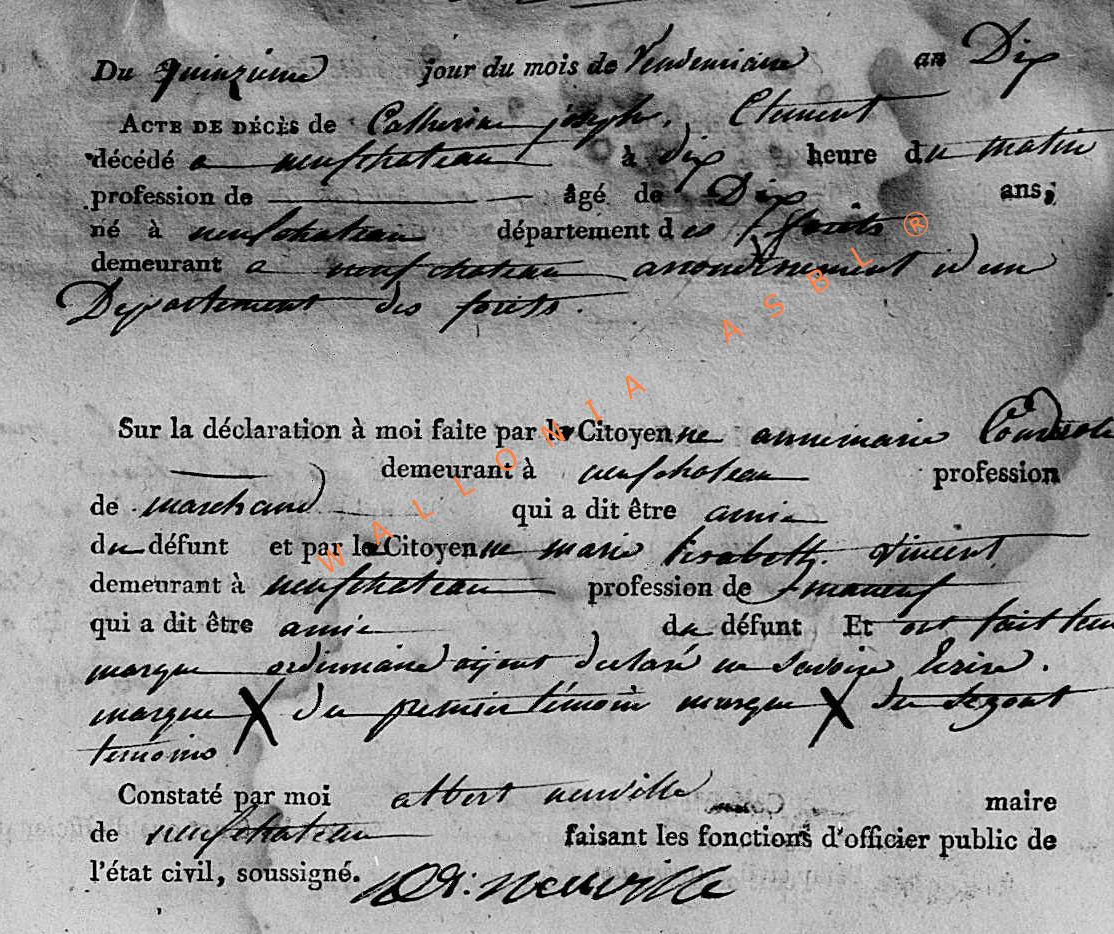 Du quinzieme jour du mois de Vendemiaire an Dix
ACTE DE DÉCÈS de Catherine joseph. Clement
décédé a neufchateau à dix heure du matin
profession de âgé de Dix ans,
né à neufchateau département des forêts
demeurant a neufchateau arrondissement idem
Departement des forets.
Sur la déclaration à moi faite par la Citoyenne annemarie
demeurant à neufchateau profession
de marchand qui a dit être amie
du défunt et par la Citoyenne marie Lisabeth. vincent
demeurant à neufchateau profession de
qui a dit être amie du défunt Et ont fait leur
marque ordinaire aijant declaré ne savoir Ecrire.
marque X du premier témoin marque X du segont
temoins
Constaté par moi albert neuville maire
de neufchateau faisant les fonctions d'officier public de
l'état civil, soussigné. neuville
WALLONIA ASBL ®